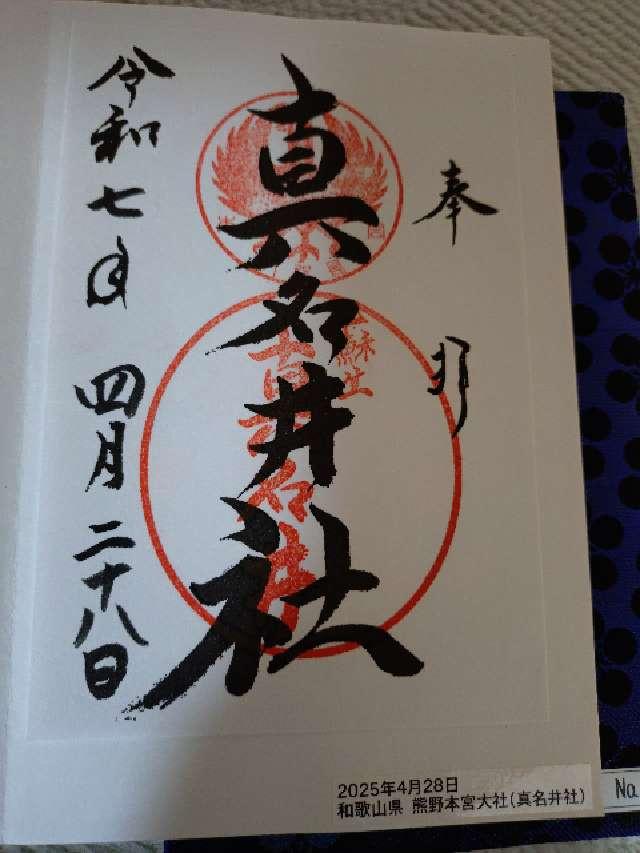 奉拝
真名井社
令和七年 四月 二十八日
蘇生
2025年4月28日
和歌山県 熊野本宮大社(真名井社)
Na